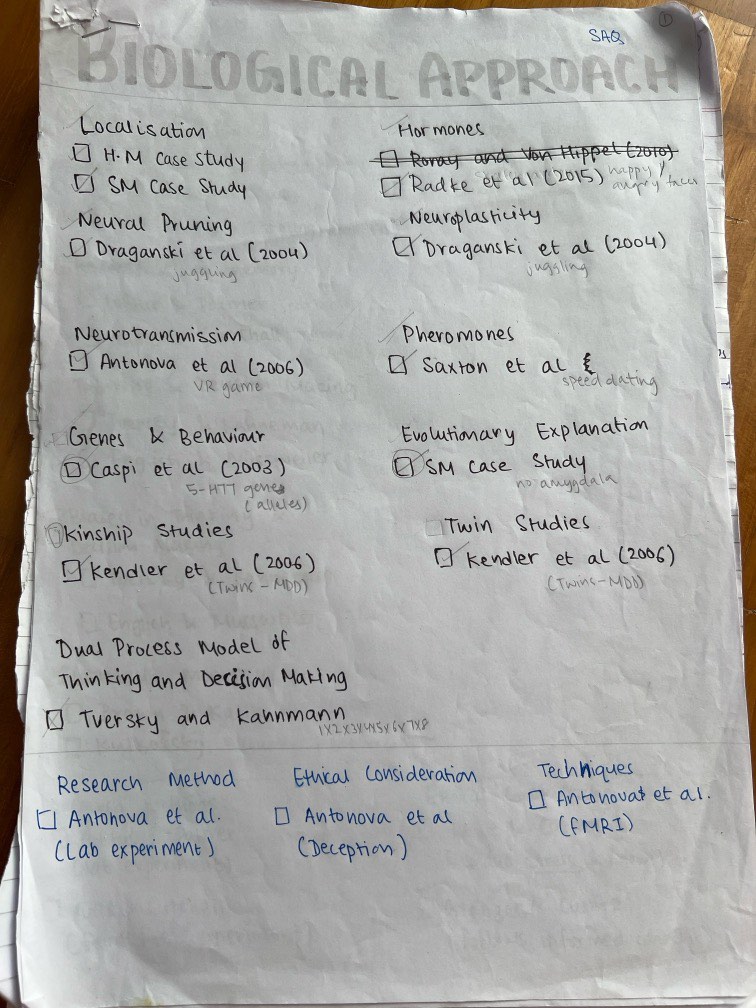 ①
SAQ
BIOLOGICAL APPROACH
Localisation
H.M Case Study
SM Case Study
Hormones
Ronay and Von Hippel (2010)
Radke et al (2015) happy/
angry faces
Neural Pruning
Draganski et al (2004)
juggling
Neuroplasticity
Draganski et al (2004)
juggling
Neurotransmission
Antonova et al (2006)
VR game
Pheromones
Saxton et al
speed dating
Genes & Behaviour
Caspi et al (2003)
5-HTT genes
(alleles)
Evolutionary Explanation
SM Case Study
no amygdala
Kinship Studies
Kendler et al (2006)
(Twins - MDD)
Twin Studies
Kendler et al (2006)
(Twins - MDD)
Dual Process Model of
Thinking and Decision Making
Tversky and Kahnmann
1x2x3x4x5x6x7x8
Research Method
Antonova et al.
(Lab experiment)
Ethical Consideration
Antonova et al
(Deception)
Techniques
Antonova et al.
(fMRI)